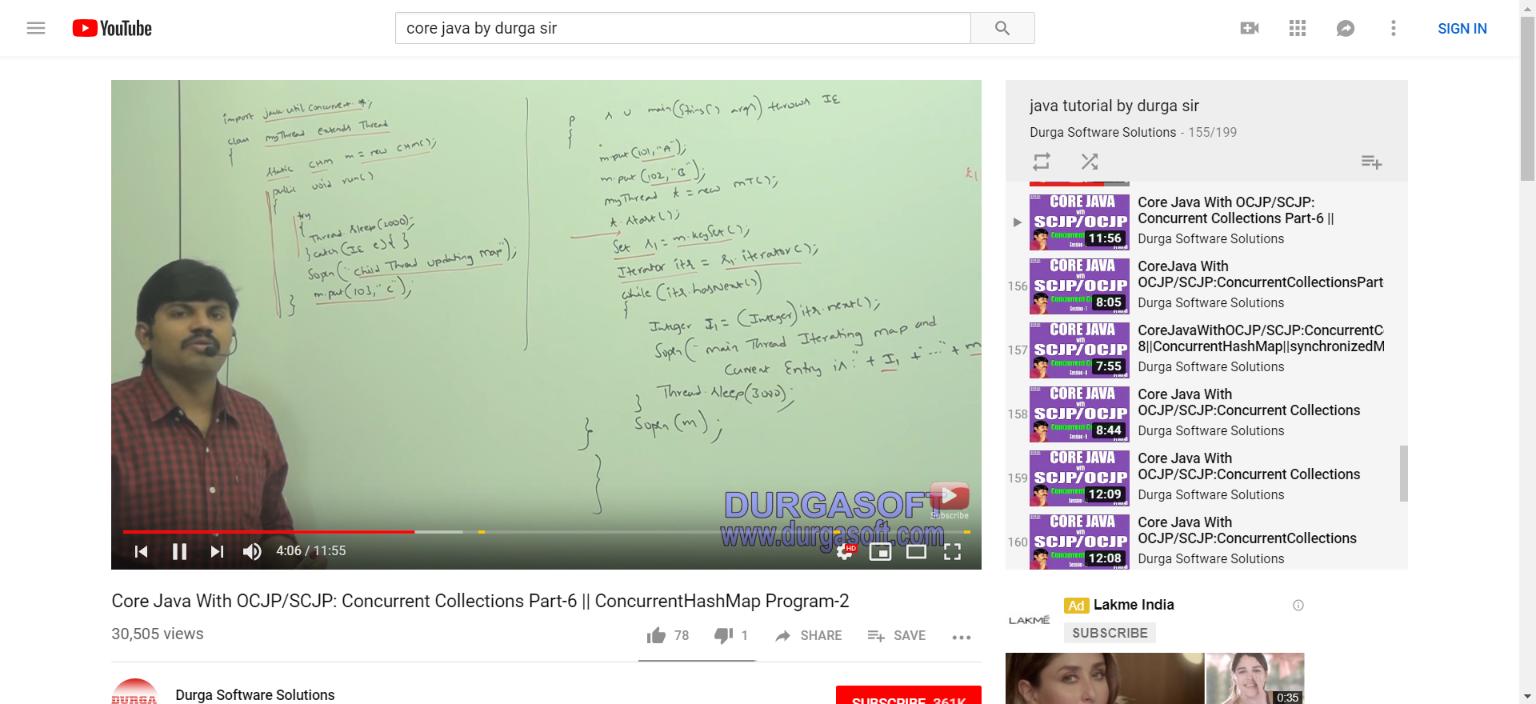 YouTube
core java by durga sir
SIGN IN
import java.util.concurrent.*;
class myThread extends Thread
{
static CHM m = new CHM();
public void run()
{
try
{
Thread.sleep(2000);
} catch (IE e) { }
Sopln("child Thread updating map");
m.put(103,"C");
}
p s v main(String[] args) throws IE
{
m.put(101,"A");
m.put(102,"B");
myThread t = new mT();
t.start();
Set s1 = m.keySet();
Iterator itr = s1.iterator();
while (itr.hasNext())
{
Integer I1 = (Integer)itr.next();
Sopln("main Thread Iterating map and
Current Entry is:" + I1 + "..." + m
Thread.sleep(3000);
}
Sopln(m);
}
}
DURGASOFT
www.durgasoft.com
Subscribe
4:06 / 11:55
HD
Core Java With OCJP/SCJP: Concurrent Collections Part-6 || ConcurrentHashMap Program-2
30,505 views
78
1
SHARE
SAVE
DURGA
Durga Software Solutions
SUBSCRIBE 361K
java tutorial by durga sir
Durga Software Solutions - 155/199
CORE JAVA
with
SCJP/OCJP
11:56
Core Java With OCJP/SCJP:
Concurrent Collections Part-6 ||
Durga Software Solutions
156
CORE JAVA
with
SCJP/OCJP
8:05
CoreJava With
OCJP/SCJP:ConcurrentCollectionsPart
Durga Software Solutions
157
CORE JAVA
with
SCJP/OCJP
7:55
CoreJavaWithOCJP/SCJP:ConcurrentC
8||ConcurrentHashMap||synchronizedM
Durga Software Solutions
158
CORE JAVA
with
SCJP/OCJP
8:44
Core Java With
OCJP/SCJP:Concurrent Collections
Durga Software Solutions
159
CORE JAVA
with
SCJP/OCJP
12:09
Core Java With
OCJP/SCJP:Concurrent Collections
Durga Software Solutions
160
CORE JAVA
with
SCJP/OCJP
12:08
Core Java With
OCJP/SCJP:ConcurrentCollections
Durga Software Solutions
LAKMÉ
Ad Lakme India
SUBSCRIBE
0:35